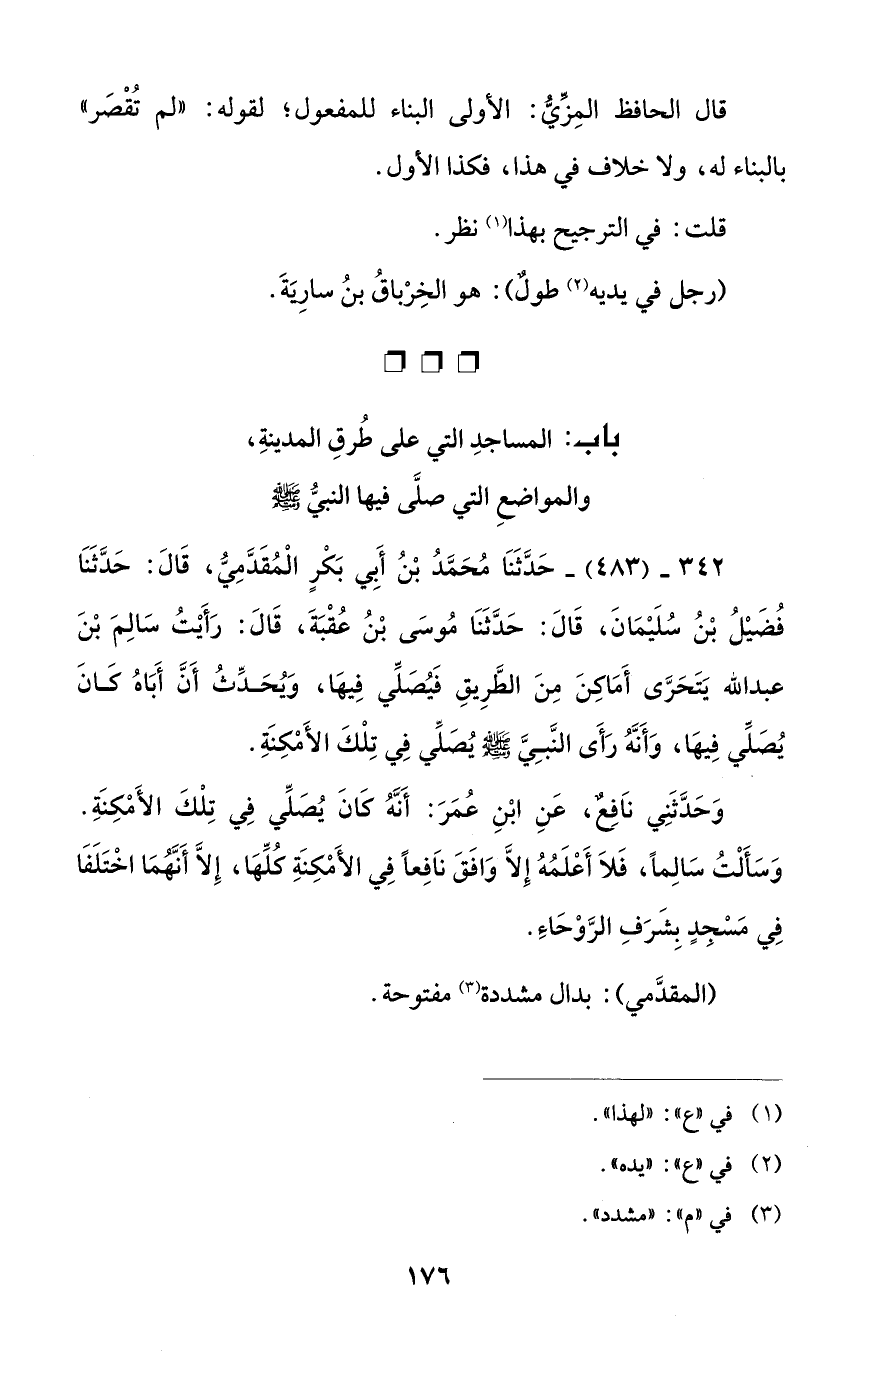 قال الحافظ المِزِّيُّ: الأولى البناء للمفعول؛ لقوله: «لم تُقْصَر»
بالبناء له، ولا خلاف في هذا، فكذا الأول.
قلت: في الترجيح بهذا(١) نظر.
(رجل في يديه(٢) طولٌ): هو الخِرْباقُ بنُ سارِيَةَ.
باب: المساجدِ التي على طُرقِ المدينةِ،
والمواضعِ التي صلَّى فيها النبيُّ ﷺ
٣٤٢ ـ (٤٨٣) ـ حَدَّثَنَا مُحَمَّدُ بْنُ أَبِي بَكْرٍ الْمُقَدَّمِيُّ، قَالَ: حَدَّثَنَا
فُضَيْلُ بْنُ سُلَيْمَانَ، قَالَ: حَدَّثَنَا مُوسَى بْنُ عُقْبَةَ، قَالَ: رَأَيْتُ سَالِمَ بْنَ
عبدالله يَتَحَرَّى أَمَاكِنَ مِنَ الطَّرِيقِ فَيُصَلِّي فِيهَا، وَيُحَدِّثُ أَنَّ أَبَاهُ كَانَ
يُصَلِّي فِيهَا، وَأَنَّهُ رَأَى النَّبِيَّ ﷺ يُصَلِّي فِي تِلْكَ الأَمْكِنَةِ.
وَحَدَّثَنِي نَافِعٌ، عَنِ ابْنِ عُمَرَ: أَنَّهُ كَانَ يُصَلِّي فِي تِلْكَ الأَمْكِنَةِ.
وَسَأَلْتُ سَالِماً، فَلاَ أَعْلَمُهُ إِلاَّ وَافَقَ نَافِعاً فِي الأَمْكِنَةِ كُلِّهَا، إِلاَّ أَنَّهُمَا اخْتَلَفَا
فِي مَسْجِدٍ بِشَرَفِ الرَّوْحَاءِ.
(المقدَّمي): بدال مشددة(٣) مفتوحة.
(١) في «ع»: «لهذا».
(٢) في «ع»: «يده».
(٣) في «م»: «مشدد».
١٧٦